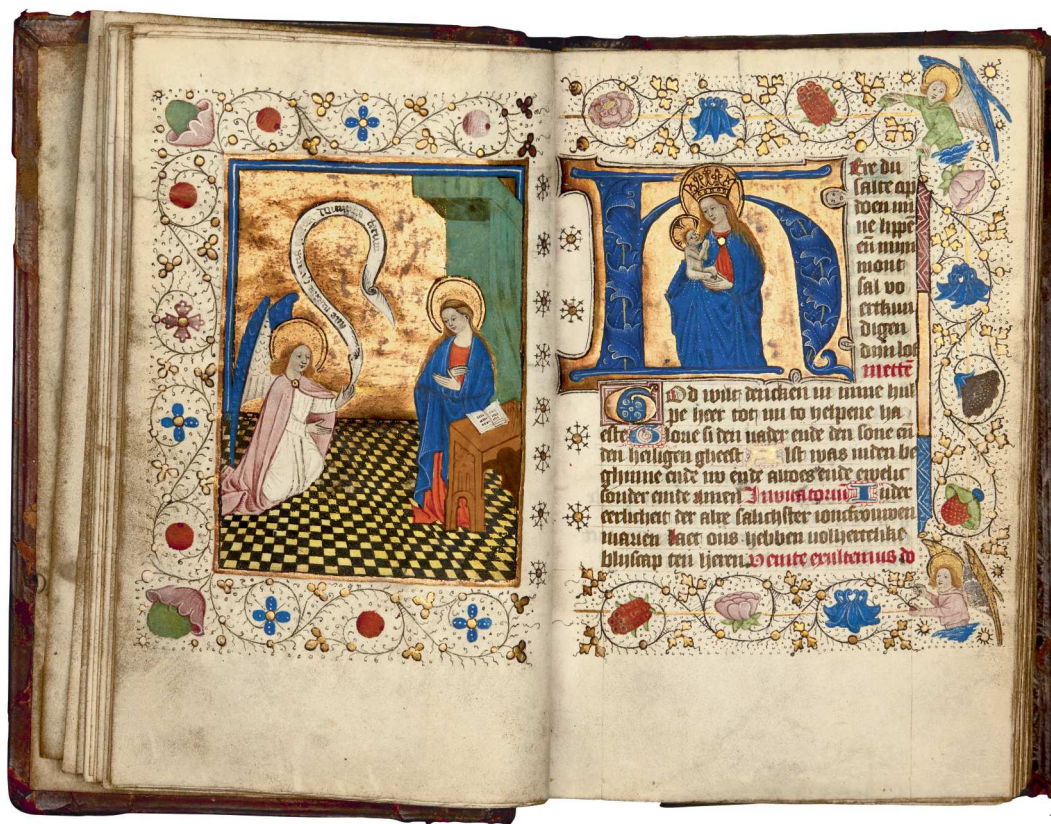 ave gratia plena dominus tecum
Here du
salte op
doen mi
ne lippe
en̄ min
mont
sal vo
ertkun
digen
dijn lof
mette
God wilt dencken in mine hul
pe heer tot mi to helpene ha
este Glorie si den vader ende den sone en̄
den heiligen gheest Alst was inden be
ghinne ende nu ende altoes ende ewelic
sonder einde amen Invitatoriū Inder
eerlicheit der alre salichster ioncfrouwen
marien Laet ons hebben volhertelike
bliscap ten heren Venite exultemus do